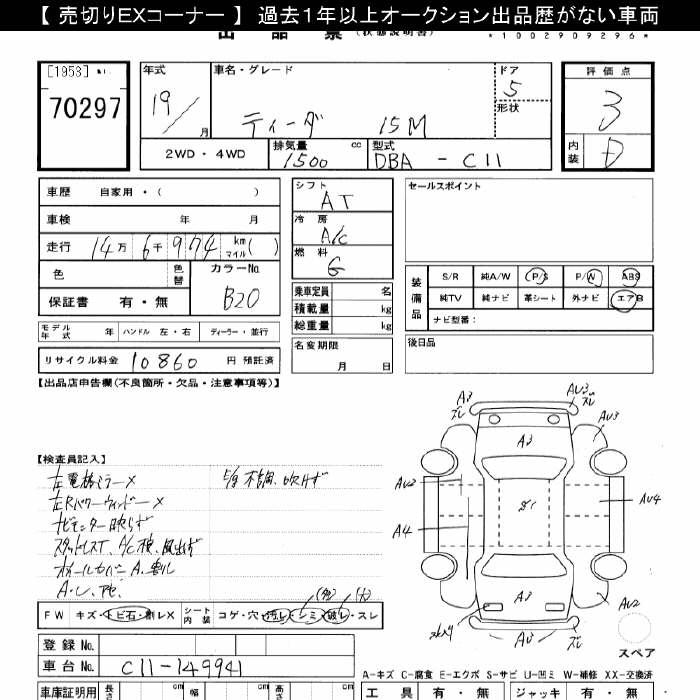 【 売切りEXコーナー 】 過去1年以上オークション出品歴がない車両
出品票 (状態説明書)
*1002909296*
[1953] No.
70297
年式
19/
月
車名・グレード
ティーダ 15M
ドア
5
形状
評価点
3
内装
D
2WD・4WD
排気量 cc
1500
型式
DBA - C11
車歴 自家用・( )
車検 年 月
走行 14万 6千 974 km マイル( )
色
色替
カラーNo.
B20
保証書 有・無
モデル年式 年
ハンドル 左・右
ディーラー・並行
リサイクル料金 10860 円 預託済
シフト
AT
冷房
A/C
燃料
G
乗車定員 名
積載量 kg
総重量 kg
名変期限
月 日
セールスポイント
装備品
S/R 純A/W P/S P/W ABS
純TV 純ナビ 革シート 外ナビ エアB
ナビ型番:
後日品
【出品店申告欄(不良箇所・欠品・注意事項等)】
【検査員記入】
左電格ミラーX
左RパワーウィンドーX
ナビモニター映らず
スタッドレスT、A/C
ホイールカバーA、割れ
FW キズ・トビ石・割レX
シート内装 コゲ・穴・汚レ・シミ・破レ・スレ
登録 No.
車台 No. C11-149941
車庫証明用
長さ cm
幅 cm
高さ cm
A3
スレ
AU3
スレ
AU3
A3
AU2
A4
AU4
A3
AU2
AU3
スレ
スペア
A-キズ C-腐食 E-エクボ S-サビ U-凹ミ W-補修 XX-交換済
工具 有・無
ジャッキ 有・無